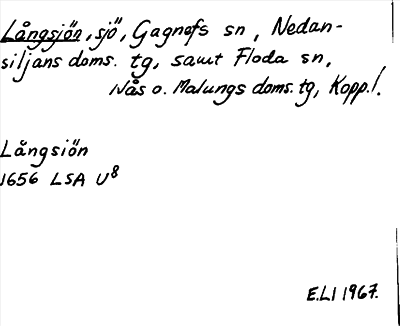 Långsjön, sjö, Gagnefs sn, Nedan-
siljans doms. tg, samt Floda sn,
Nås o. Malungs doms. tg, Kopp. l.
Långsiön
1656 LSA U8
E.LI 1967.